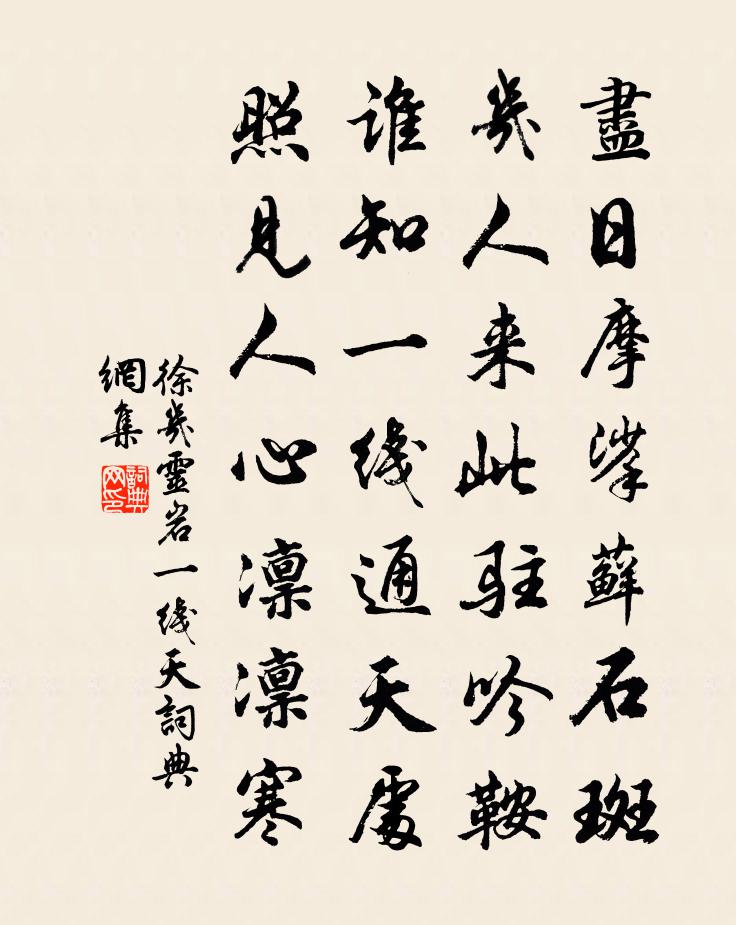 盡日摩挲蘚石斑
幾人来此駐吟鞍
谁知一线通天處
照見人心凛凛寒
徐幾靈岩一线天詞典
網集
詞典網印